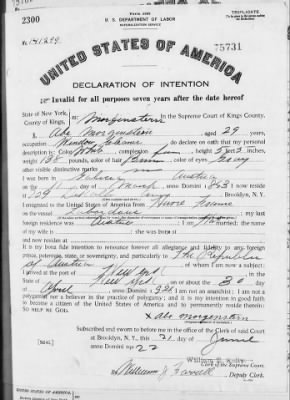 TRIPLICATE
2300
U. S. DEPARTMENT OF LABOR
NATURALIZATION SERVICE
No. 141299
75731
UNITED STATES OF AMERICA
DECLARATION OF INTENTION
Invalid for all purposes seven years after the date hereof
State of New York,
County of Kings,
In the Supreme Court of Kings County.
I, Abe Morgenstern, aged 29 years,
occupation Window Cleaner, do declare on oath that my personal
description is: Color White, complexion, height 5 feet 3 inches,
weight 138 pounds, color of hair, color of eyes Grey
other visible distinctive marks
I was born in Austria
on the day of March, anno Domini 1893; I now reside
at 229, Brooklyn, N. Y.
I emigrated to the United States of America from
on the vessel; my last
foreign residence was Austria; I am married; the name
of my wife is; she was born at
and now resides at
It is my bona fide intention to renounce forever all allegiance and fidelity to any foreign
prince, potentate, state, or sovereignty, and particularly to The Republic
of Austria, of whom I am now a subject;
I arrived at the port of New York, in the
State of New York, on or about the 30 day
of April, anno Domini 1921; I am not an anarchist; I am not a
polygamist nor a believer in the practice of polygamy; and it is my intention in good faith
to become a citizen of the United States of America and to permanently reside therein:
SO HELP ME GOD.
x abe morgenstern
Subscribed and sworn to before me in the office of the Clerk of said Court
at Brooklyn, N. Y., this 21 day of June
anno Domini 1922
[SEAL]
William E. Kelly
Clerk of the Supreme Court.
By William J. Farrell, Deputy Clerk.